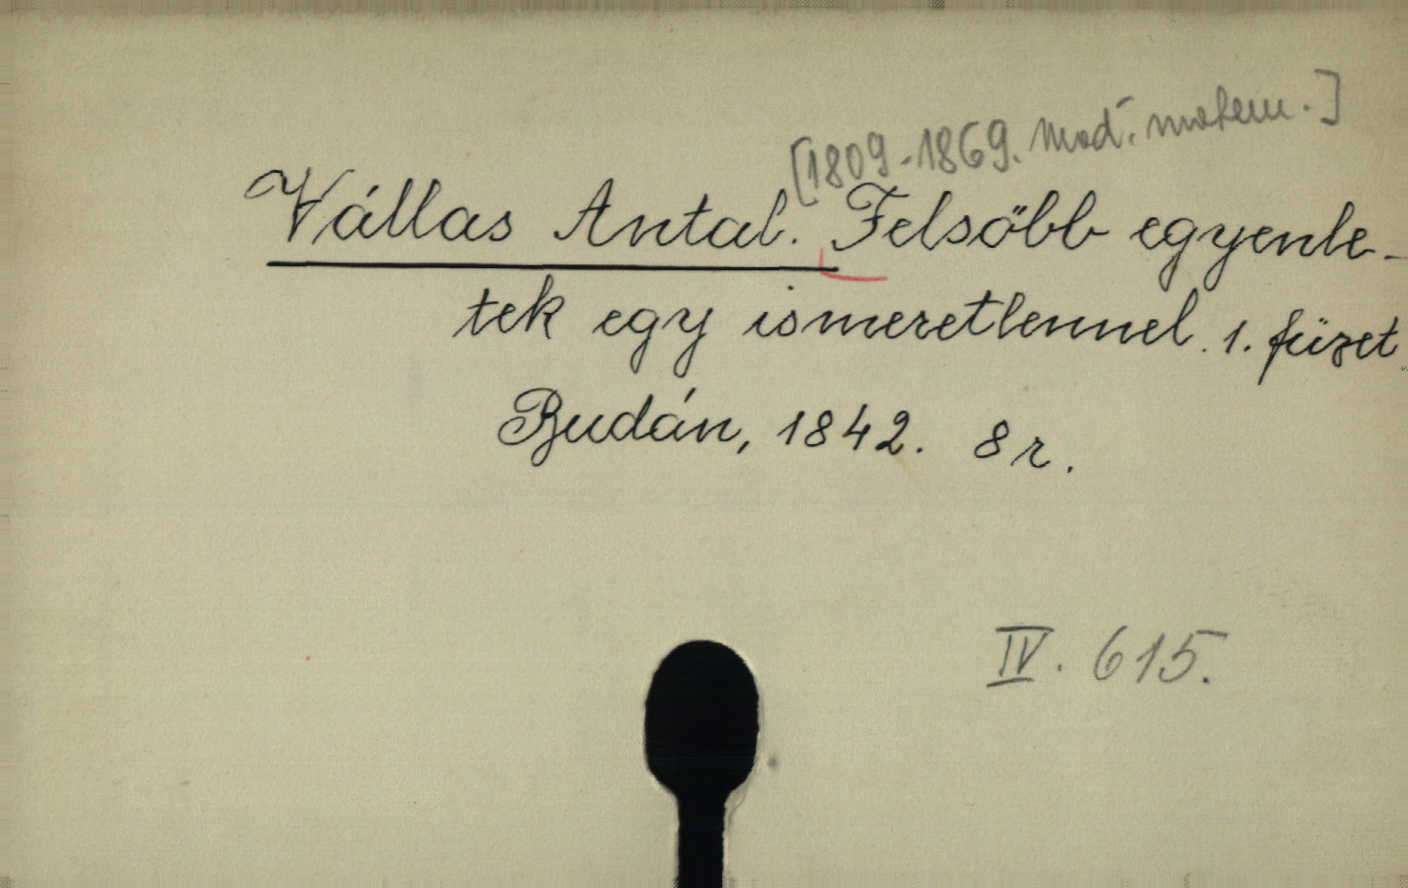 [1809-1869. mat. matem.]
Vállas Antal. Felsőbb egyenle-
tek egy ismeretlennel. 1. füzet.
Budán, 1842. 8 r.
IV. 615.